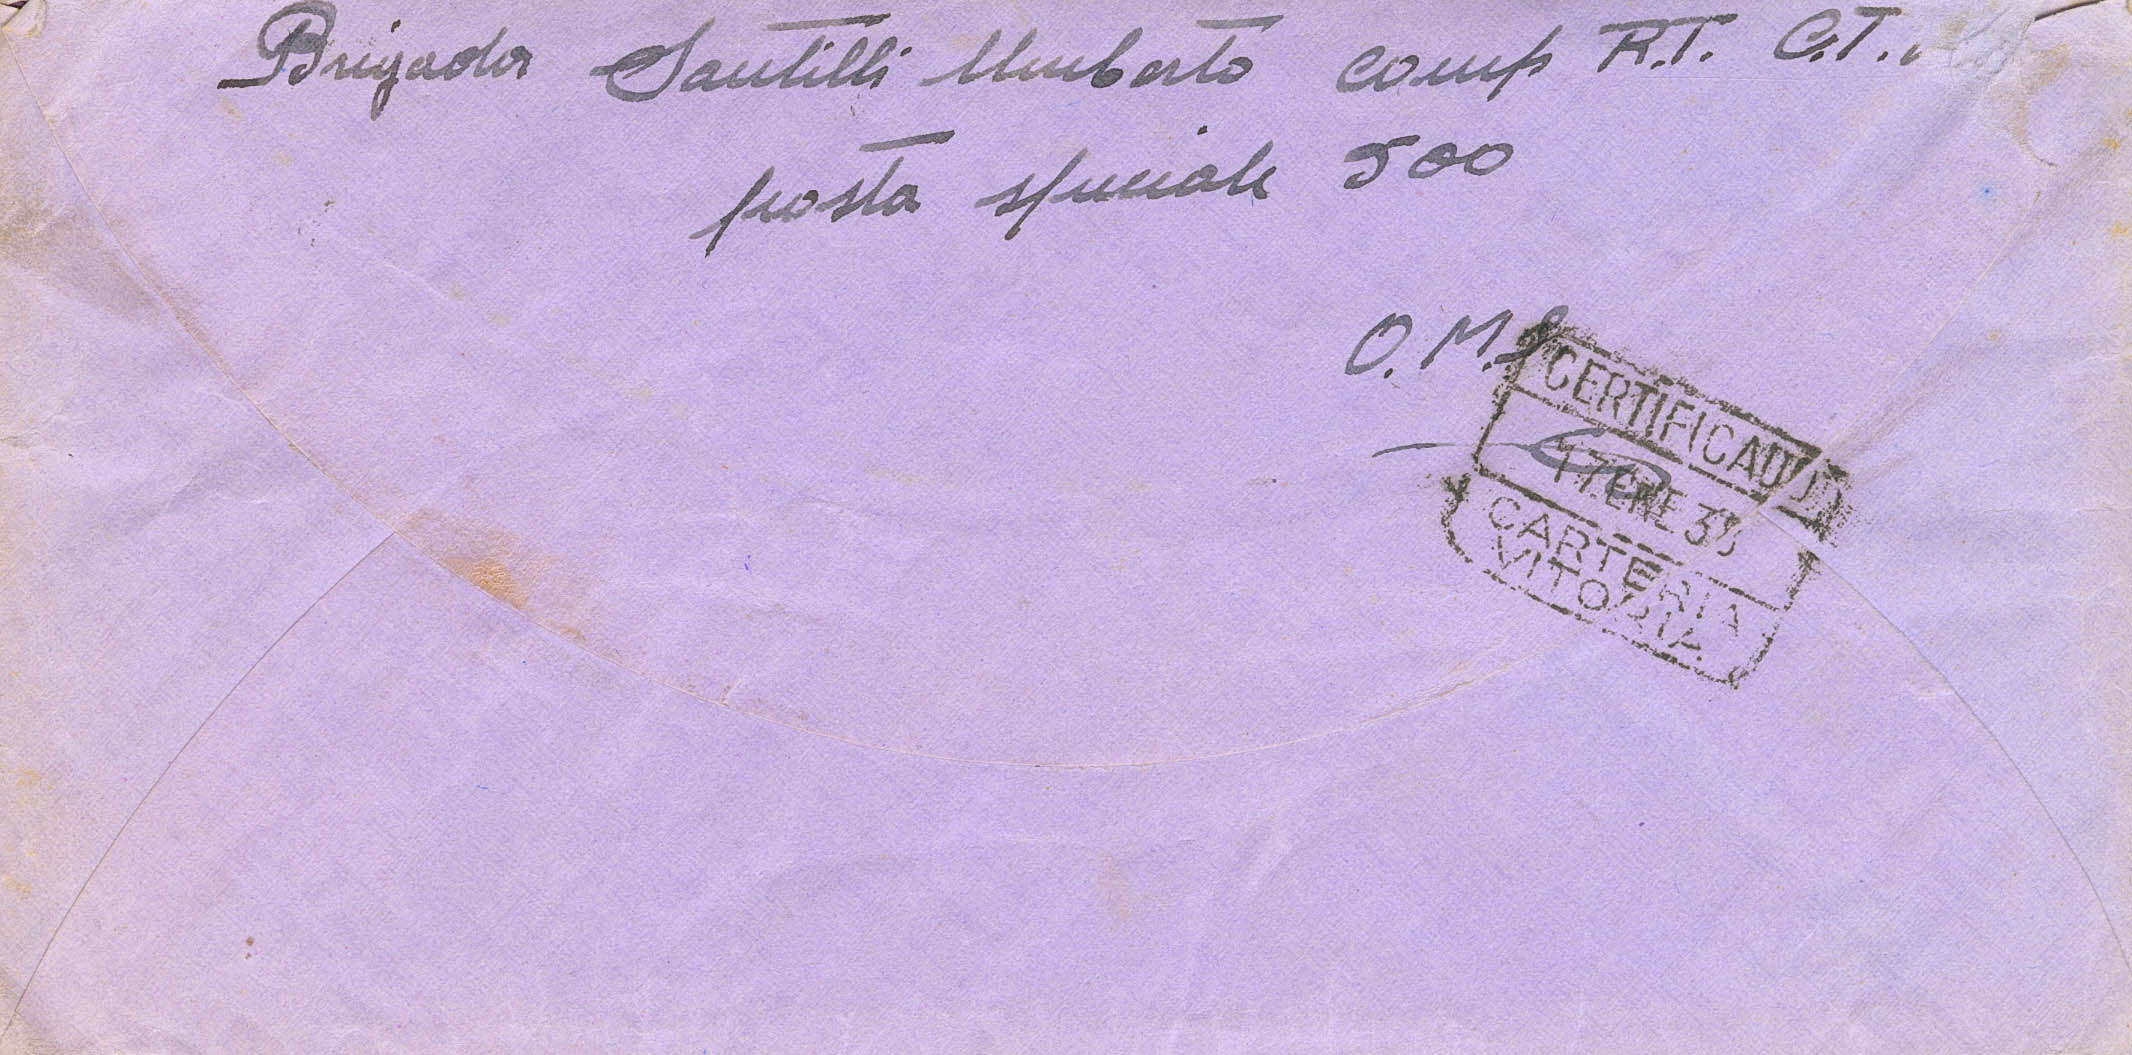 Brigada Santilli Umberto comp R.T. C.T.
posta speciale 500
O.M.S
CERTIFICADO
17 ENE 38
CARTERIA
VITORIA